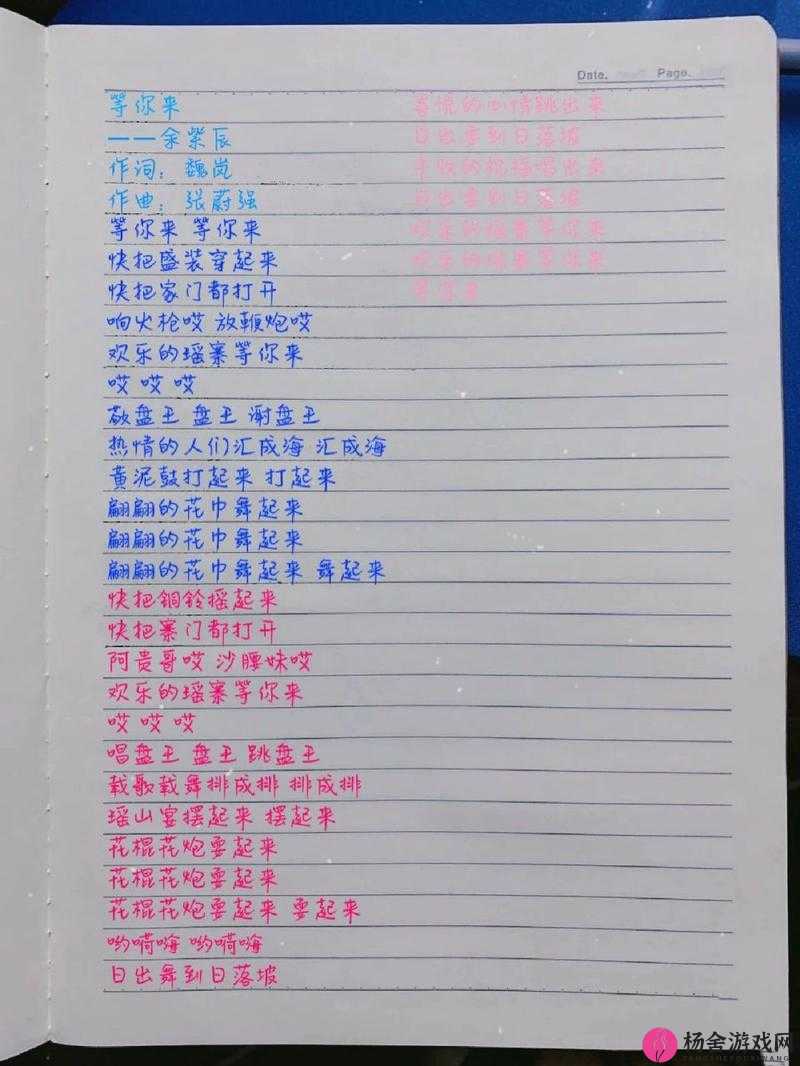 Date. Page.
等你来
——余紫辰
作词：魏岚
作曲：张蔚强
等你来 等你来
快把盛装穿起来
快把家门都打开
响火枪哎 放鞭炮哎
欢乐的瑶寨等你来
哎 哎 哎
敬盘王 盘王 谢盘王
热情的人们汇成海 汇成海
黄泥鼓打起来 打起来
翩翩的花巾舞起来
翩翩的花巾舞起来
翩翩的花巾舞起来 舞起来
快把铜铃摇起来
快把寨门都打开
阿贵哥哎 沙腰妹哎
欢乐的瑶寨等你来
哎 哎 哎
唱盘王 盘王 跳盘王
载歌载舞排成排 排成排
瑶山宴摆起来 摆起来
花棍花炮耍起来
花棍花炮耍起来
花棍花炮耍起来 耍起来
哟嗬嗨 哟嗬嗨
日出舞到日落坡
喜悦的心情跳出来
日出舞到日落坡
丰收的祝福唱出来
日出舞到日落坡
欢乐的瑶寨等你来
欢乐的瑶寨等你来
等你来
杨舍游戏网
YANGSHEYOUXIWANG